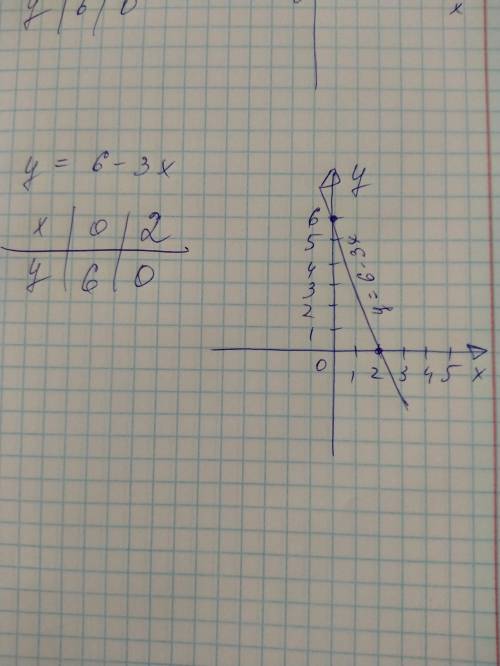 y | 6 | 0
x
y = 6 - 3x
x | 0 | 2
y | 6 | 0
y
6
5
4
3
2
1
y = 6 - 3x
0 1 2 3 4 5 x